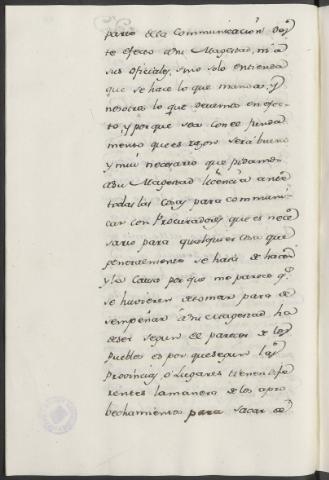 parte de la Communicacion des
te efecto a su Magestad, ni a
sus oficiales, sino solo entienda
que se hace lo que manda, y
nosotros lo que devemos en efec-
to, y porque sea con el funda
mento que es razon será bueno
y mui necesario que pidamos
a su Magestad licencia ante
todas las cosas para communi
car con Procuradores que es nece
sario para qualquier cosa que
generalmente se haia de hacer
y la causa por que me parece q.e
se huvieren de tomar para de
sempeñar a su Magestad ha
de ser segun el parecer de los
Pueblos es por que segun las
Provincias o Lugares tienen dife
rentes la manera de los apro
bechamientos para sacar de